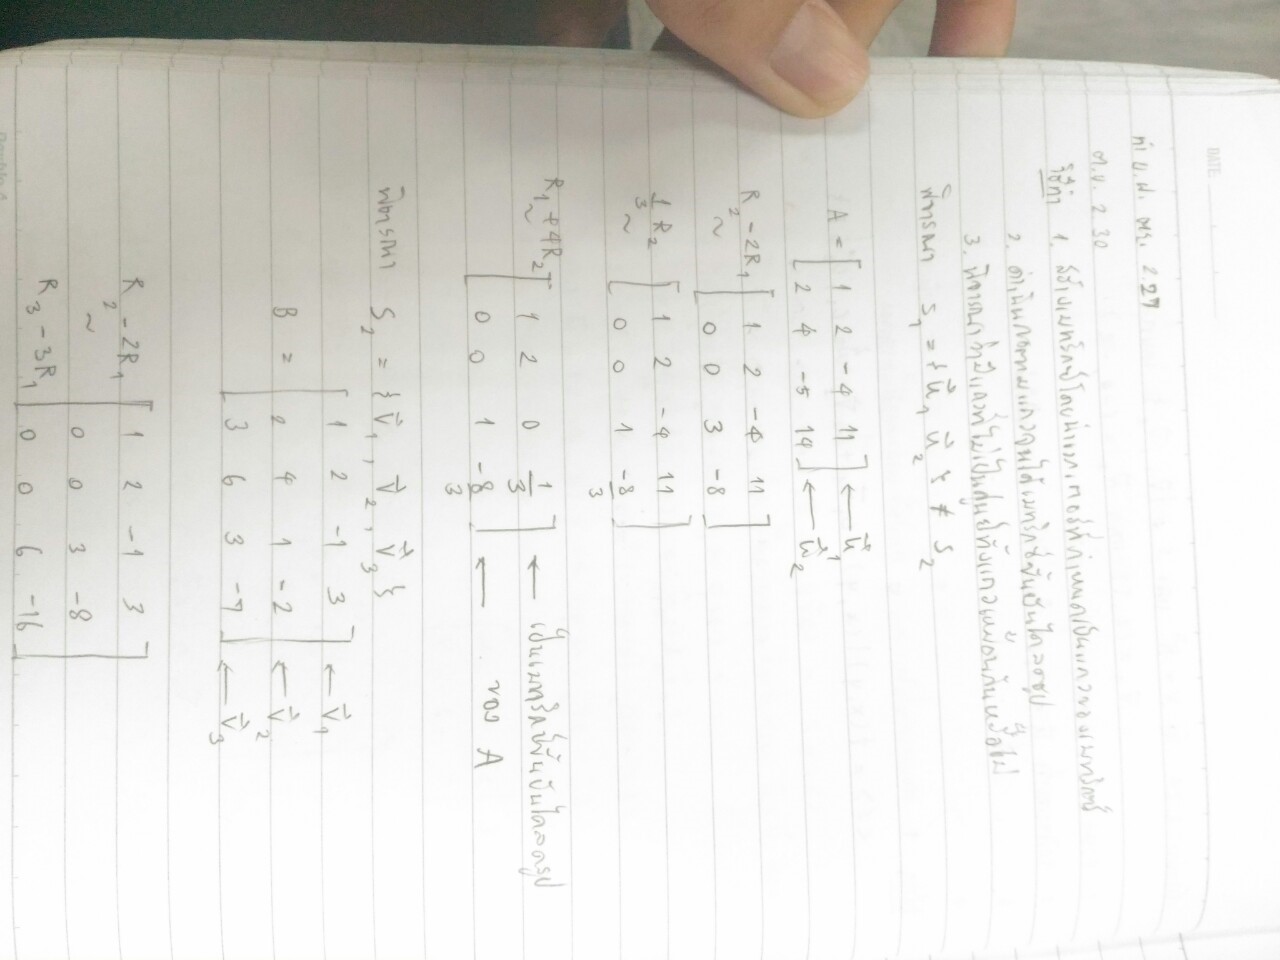 DATE.
ทำ บ.ฝ. ตย. 2.27
ต.ย. 2.30
วิธีทำ 1. สร้างเมทริกซ์โดยนำเวกเตอร์ที่กำหนดเป็นแถวของเมทริกซ์
2. ดำเนินการตามแถวจนได้เมทริกซ์ขั้นบันไดลดรูป
3. พิจารณาว่ามีแถวที่ไม่เป็นศูนย์ทั้งแถวเหมือนกันหรือไม่
พิจารณา S₁ = { u⃗₁ u⃗₂ } ≠ S₂
A = [ 1 2 -4 11 ] ← u⃗₁
[ 2 4 -5 14 ] ← u⃗₂
R₂ - 2R₁ [ 1 2 -4 11 ]
~ [ 0 0 3 -8 ]
1/3 R₂ [ 1 2 -4 11 ]
~ [ 0 0 1 -8/3 ]
R₁ + 4R₂ ~ [ 1 2 0 1/3 ] ← เป็นเมทริกซ์ขั้นบันไดลดรูป
[ 0 0 1 -8/3 ] ← ของ A
พิจารณา S₂ = { v⃗₁ , v⃗₂ , v⃗₃ }
[ 1 2 -1 3 ] ← v⃗₁
B = [ 2 4 1 -2 ] ← v⃗₂
[ 3 6 3 -7 ] ← v⃗₃
R₂ - 2R₁ [ 1 2 -1 3 ]
~ [ 0 0 3 -8 ]
R₃ - 3R₁ [ 0 0 6 -16 ]